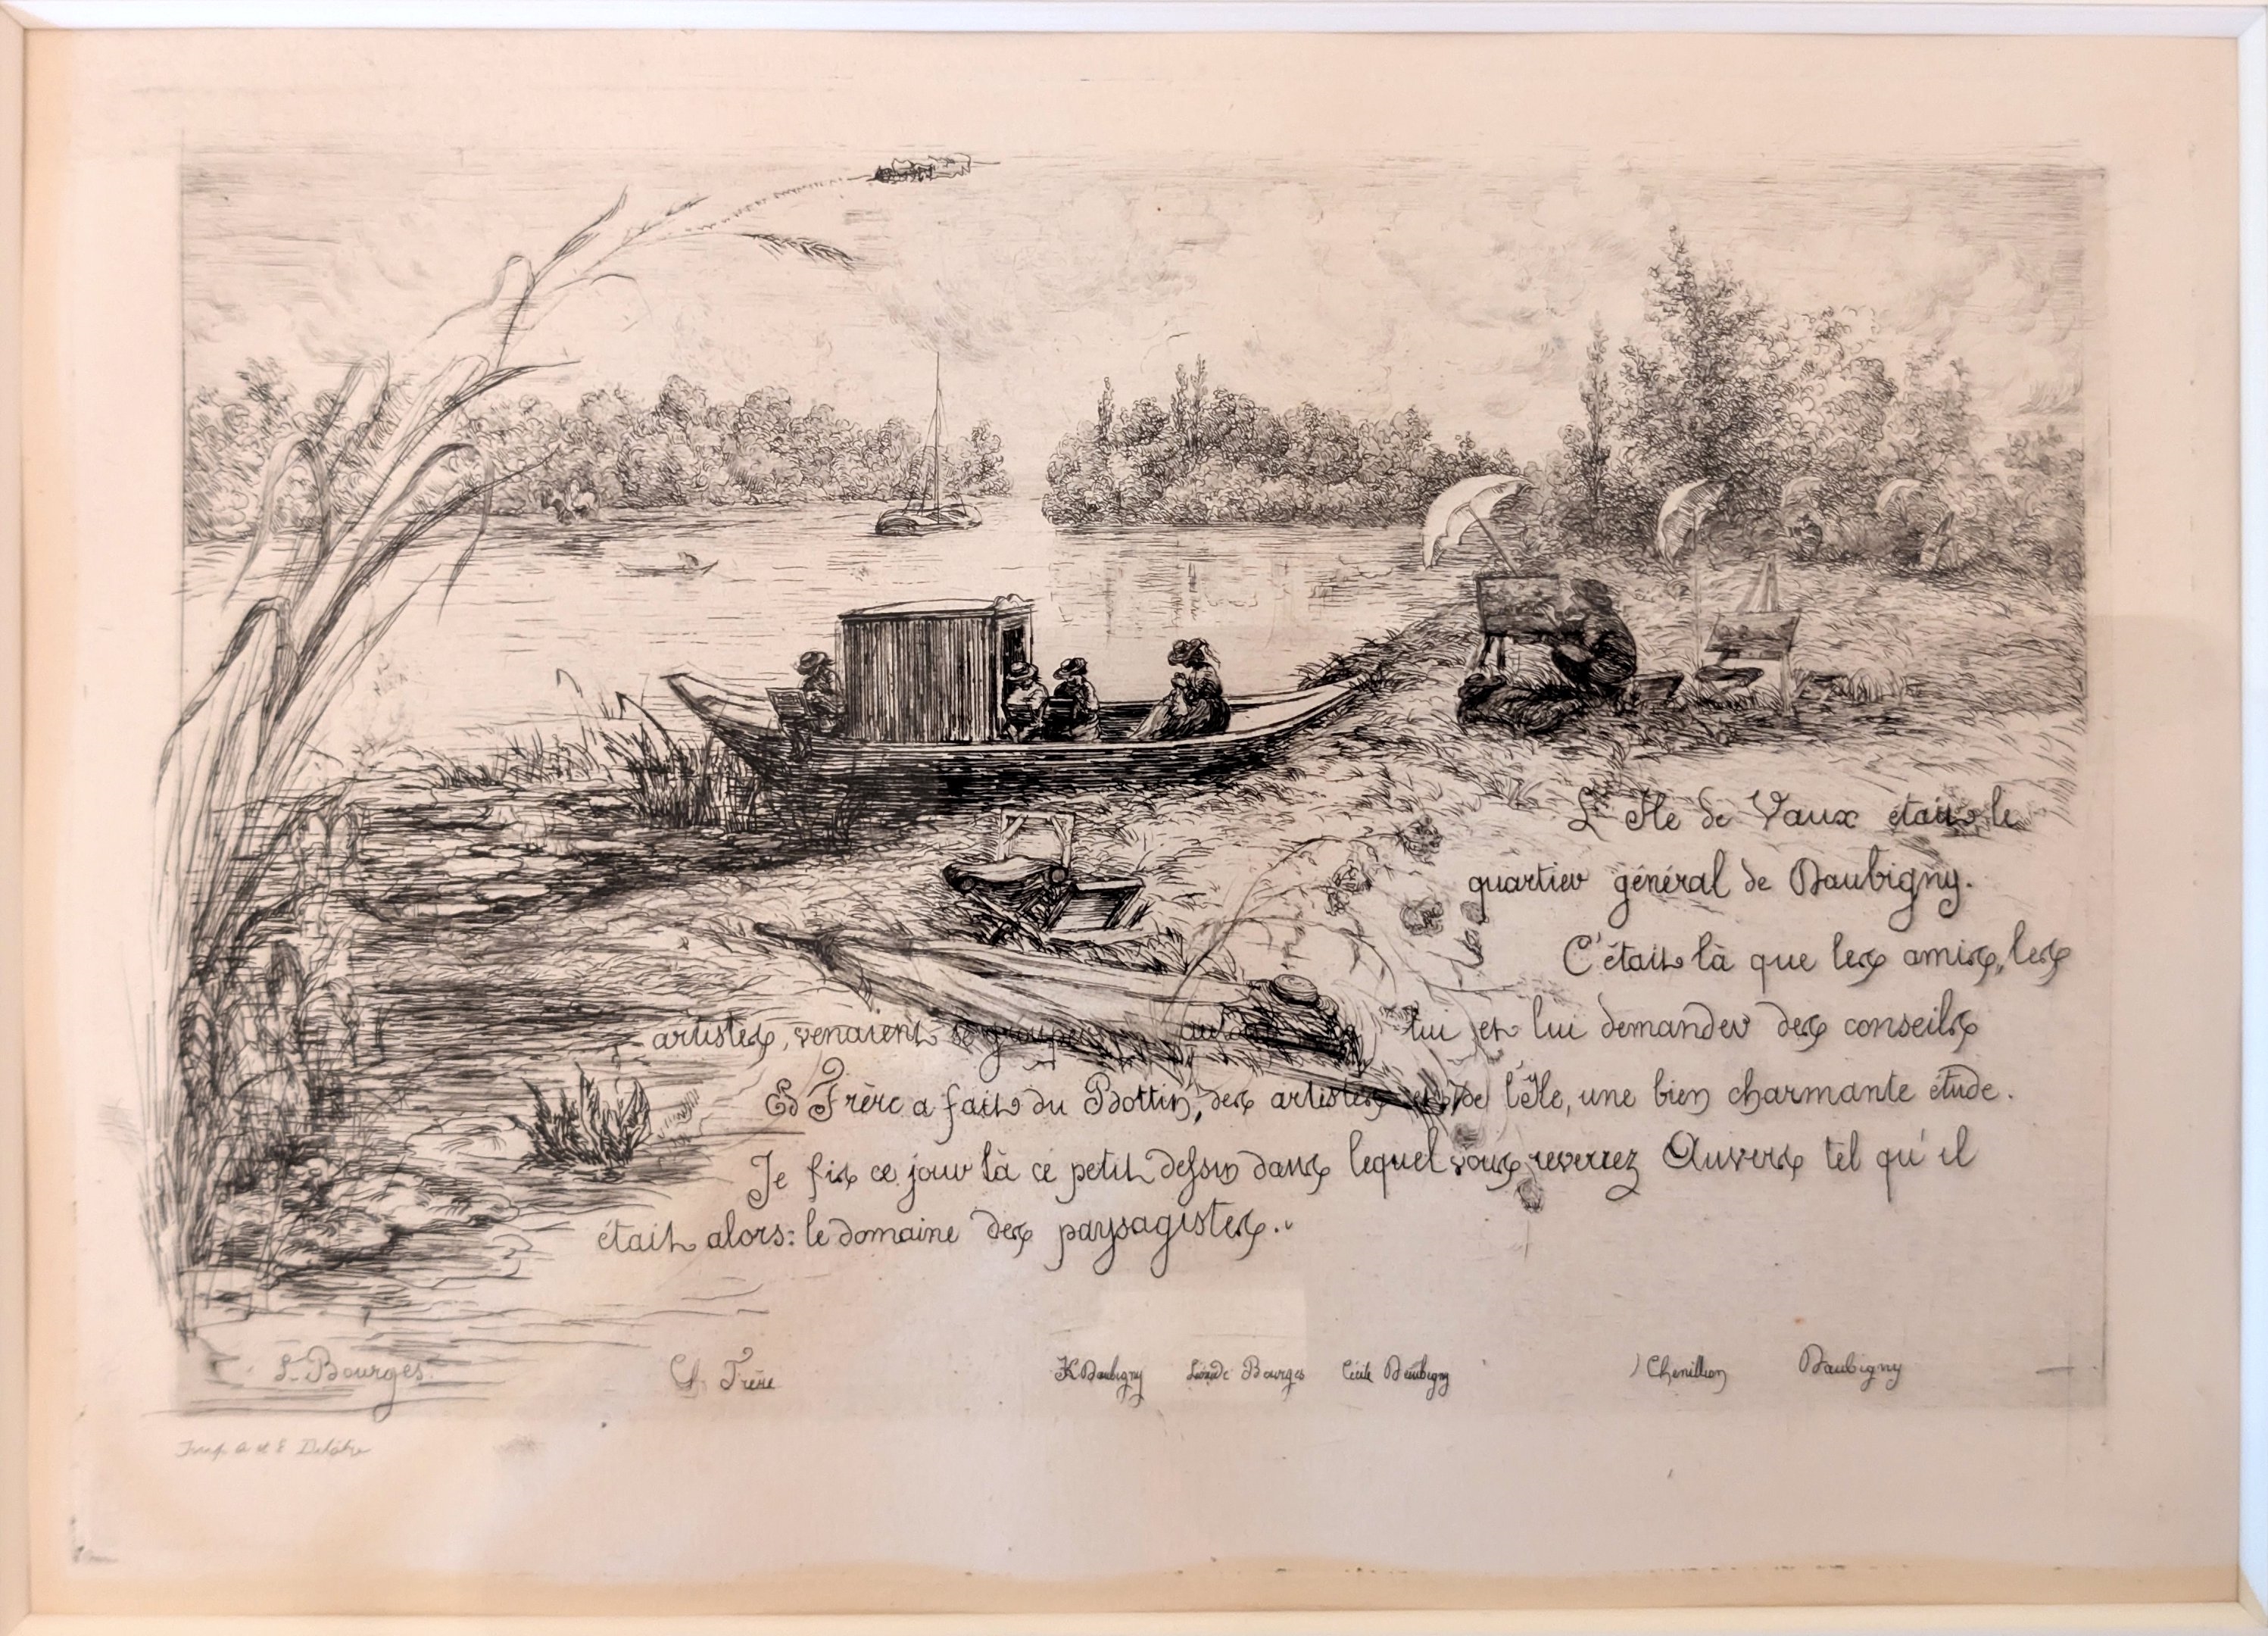 L'Ile de Vaux était le
quartier général de Daubigny.
C'était là que les amis, les
artistes, venaient se grouper autour lui et lui demander des conseils
Ed Frère a fait du Bottin, des artistes et de l'Ile, une bien charmante étude.
Je fis ce jour là ce petit dessin dans lequel vous reverrez Auvers tel qu'il
était alors: le domaine des paysagistes.
L. Bourges. Frère K Daubigny Léonide Bourges Cécile Daubigny Chenillion Daubigny
Imp. A et E Delâtre